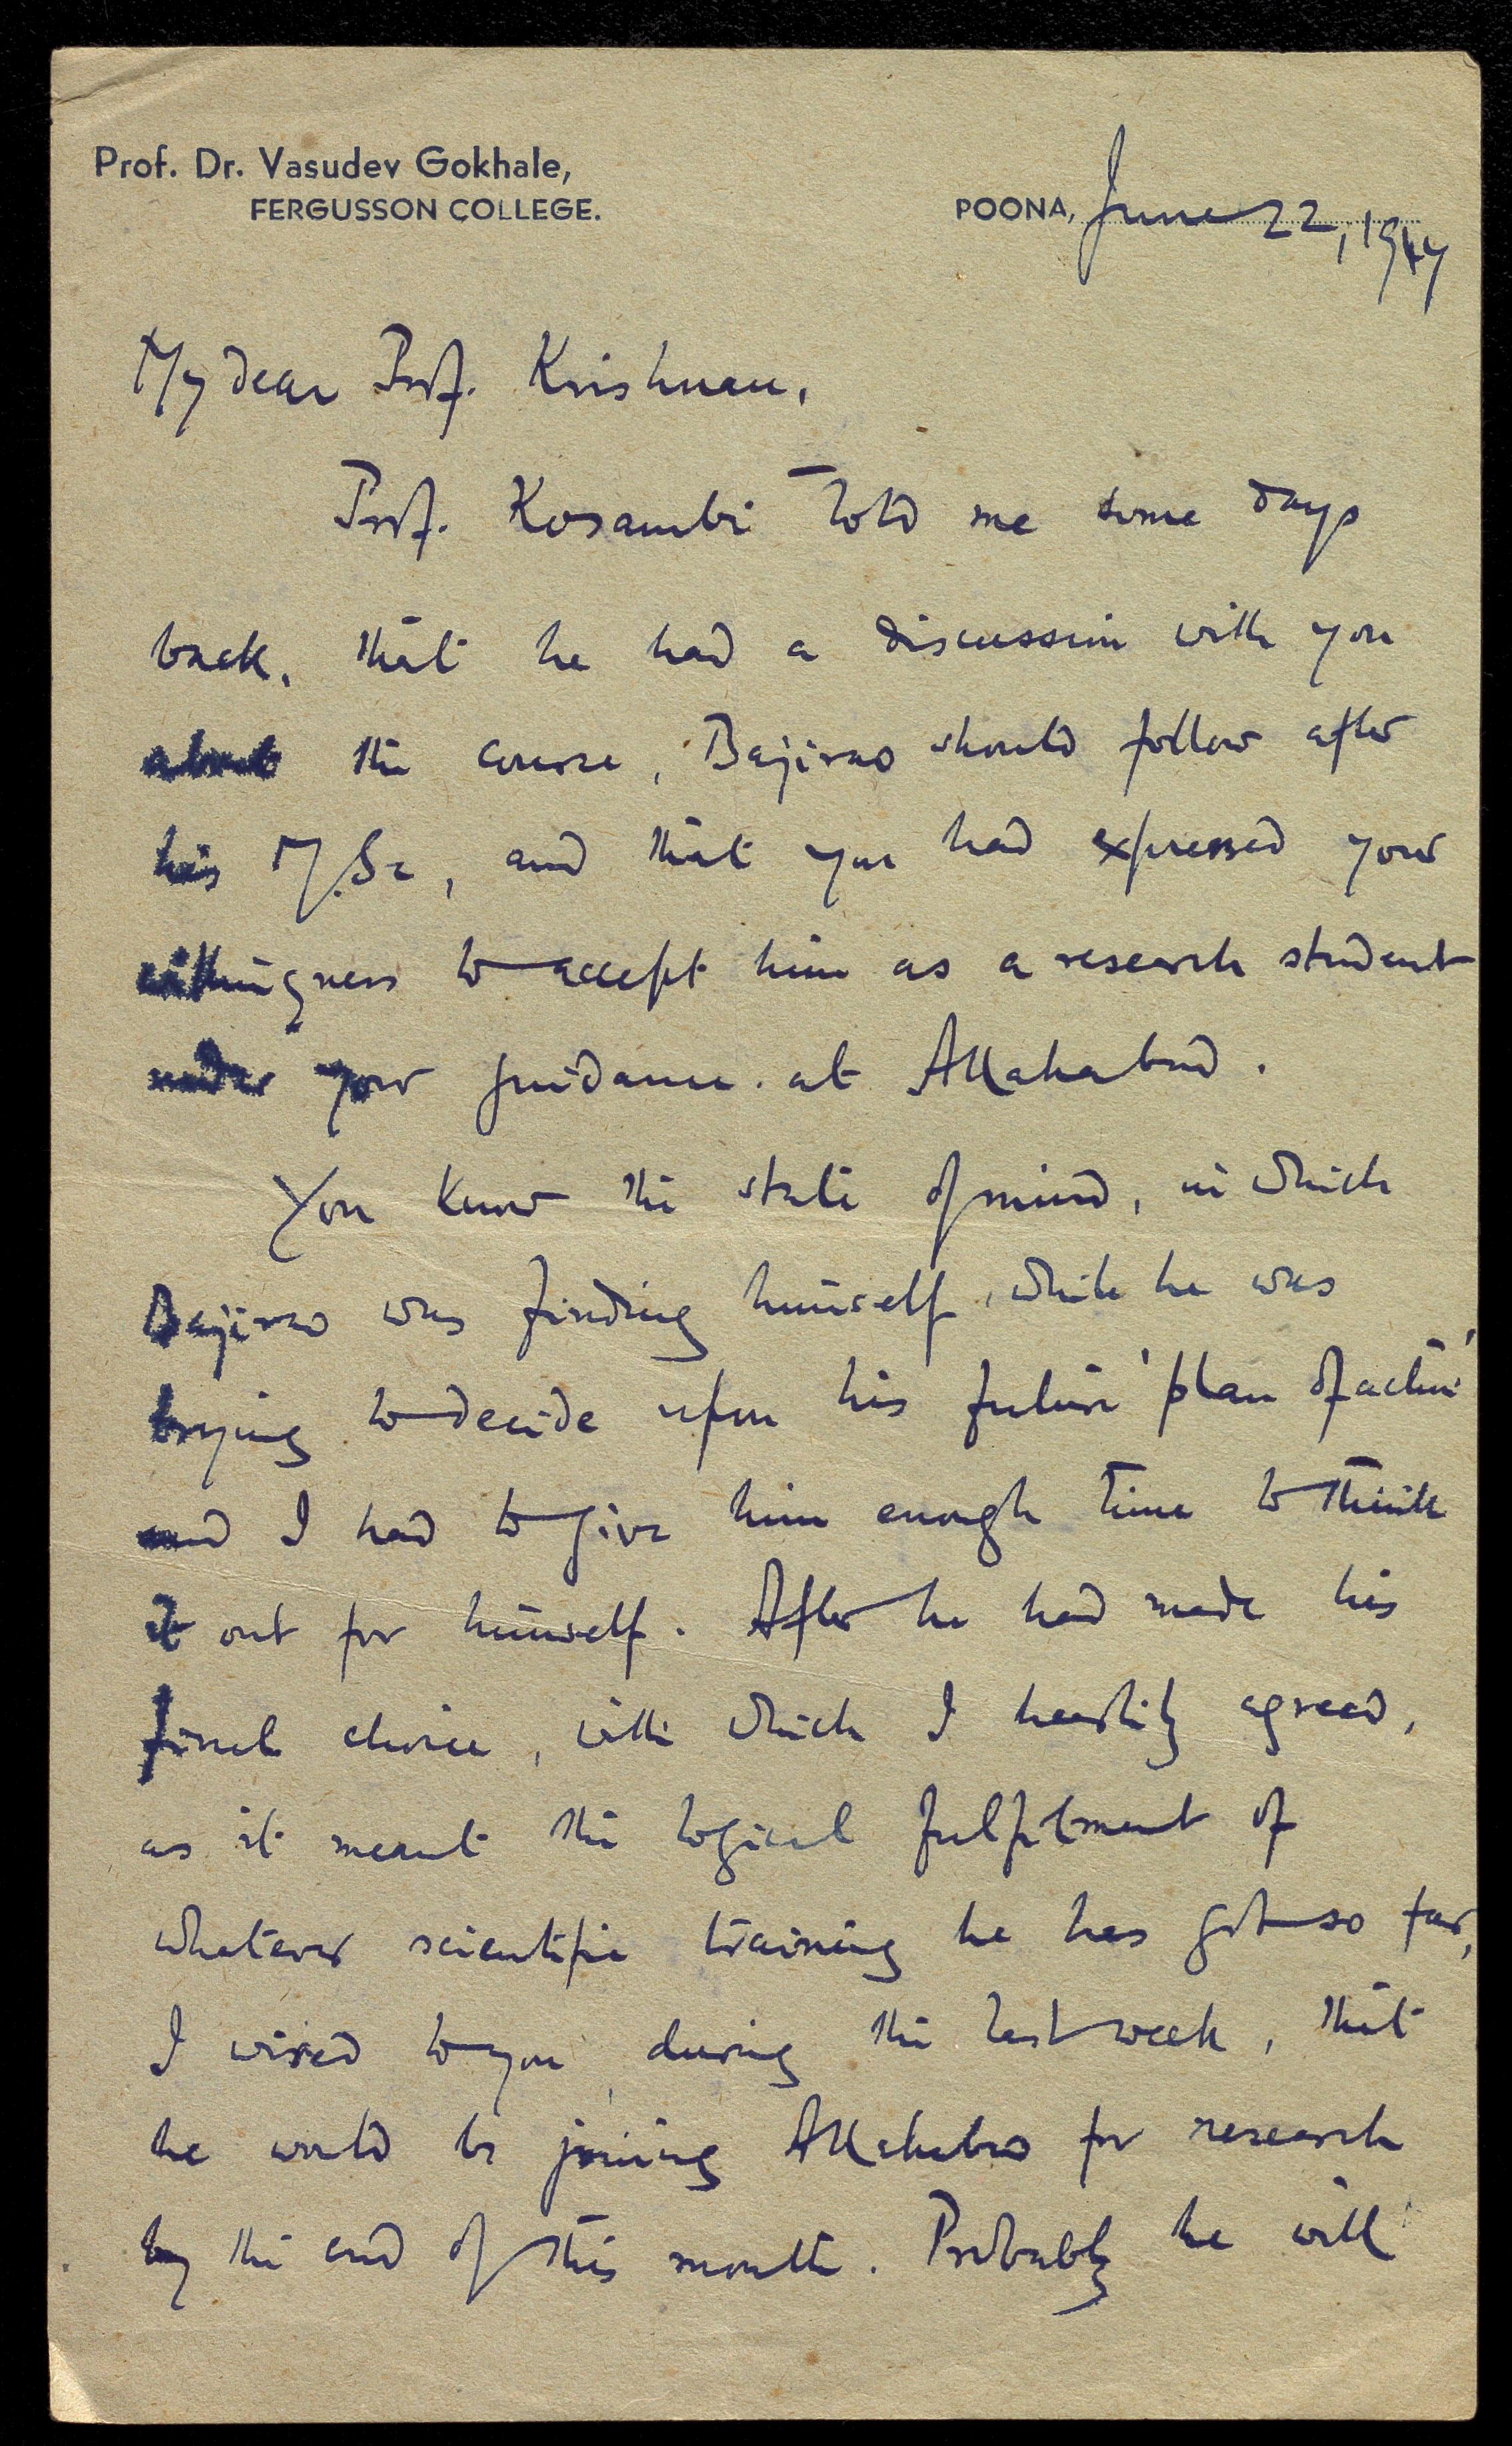 Prof. Dr. Vasudev Gokhale,
FERGUSSON COLLEGE.
POONA, June 22, 1947
My dear Prof. Krishnan,
Prof. Kosambi told me some days
back, that he had a discussion with you
about the course, Bajirao should follow after
his M.Sc, and that you had expressed your
willingness to accept him as a research student
under your guidance. at Allahabad.
You know the state of mind, in which
Bajirao was finding himself, while he was
trying to decide upon his future 'plan of action'
and I had to give him enough time to think
it out for himself. After he had made his
final choice, with which I heartily agreed,
as it meant the logical fulfilment of
whatever scientific training he has got so far,
I wired to you, during the last week, that
he would be joining Allahabad for research
by the end of this month. Probably he will